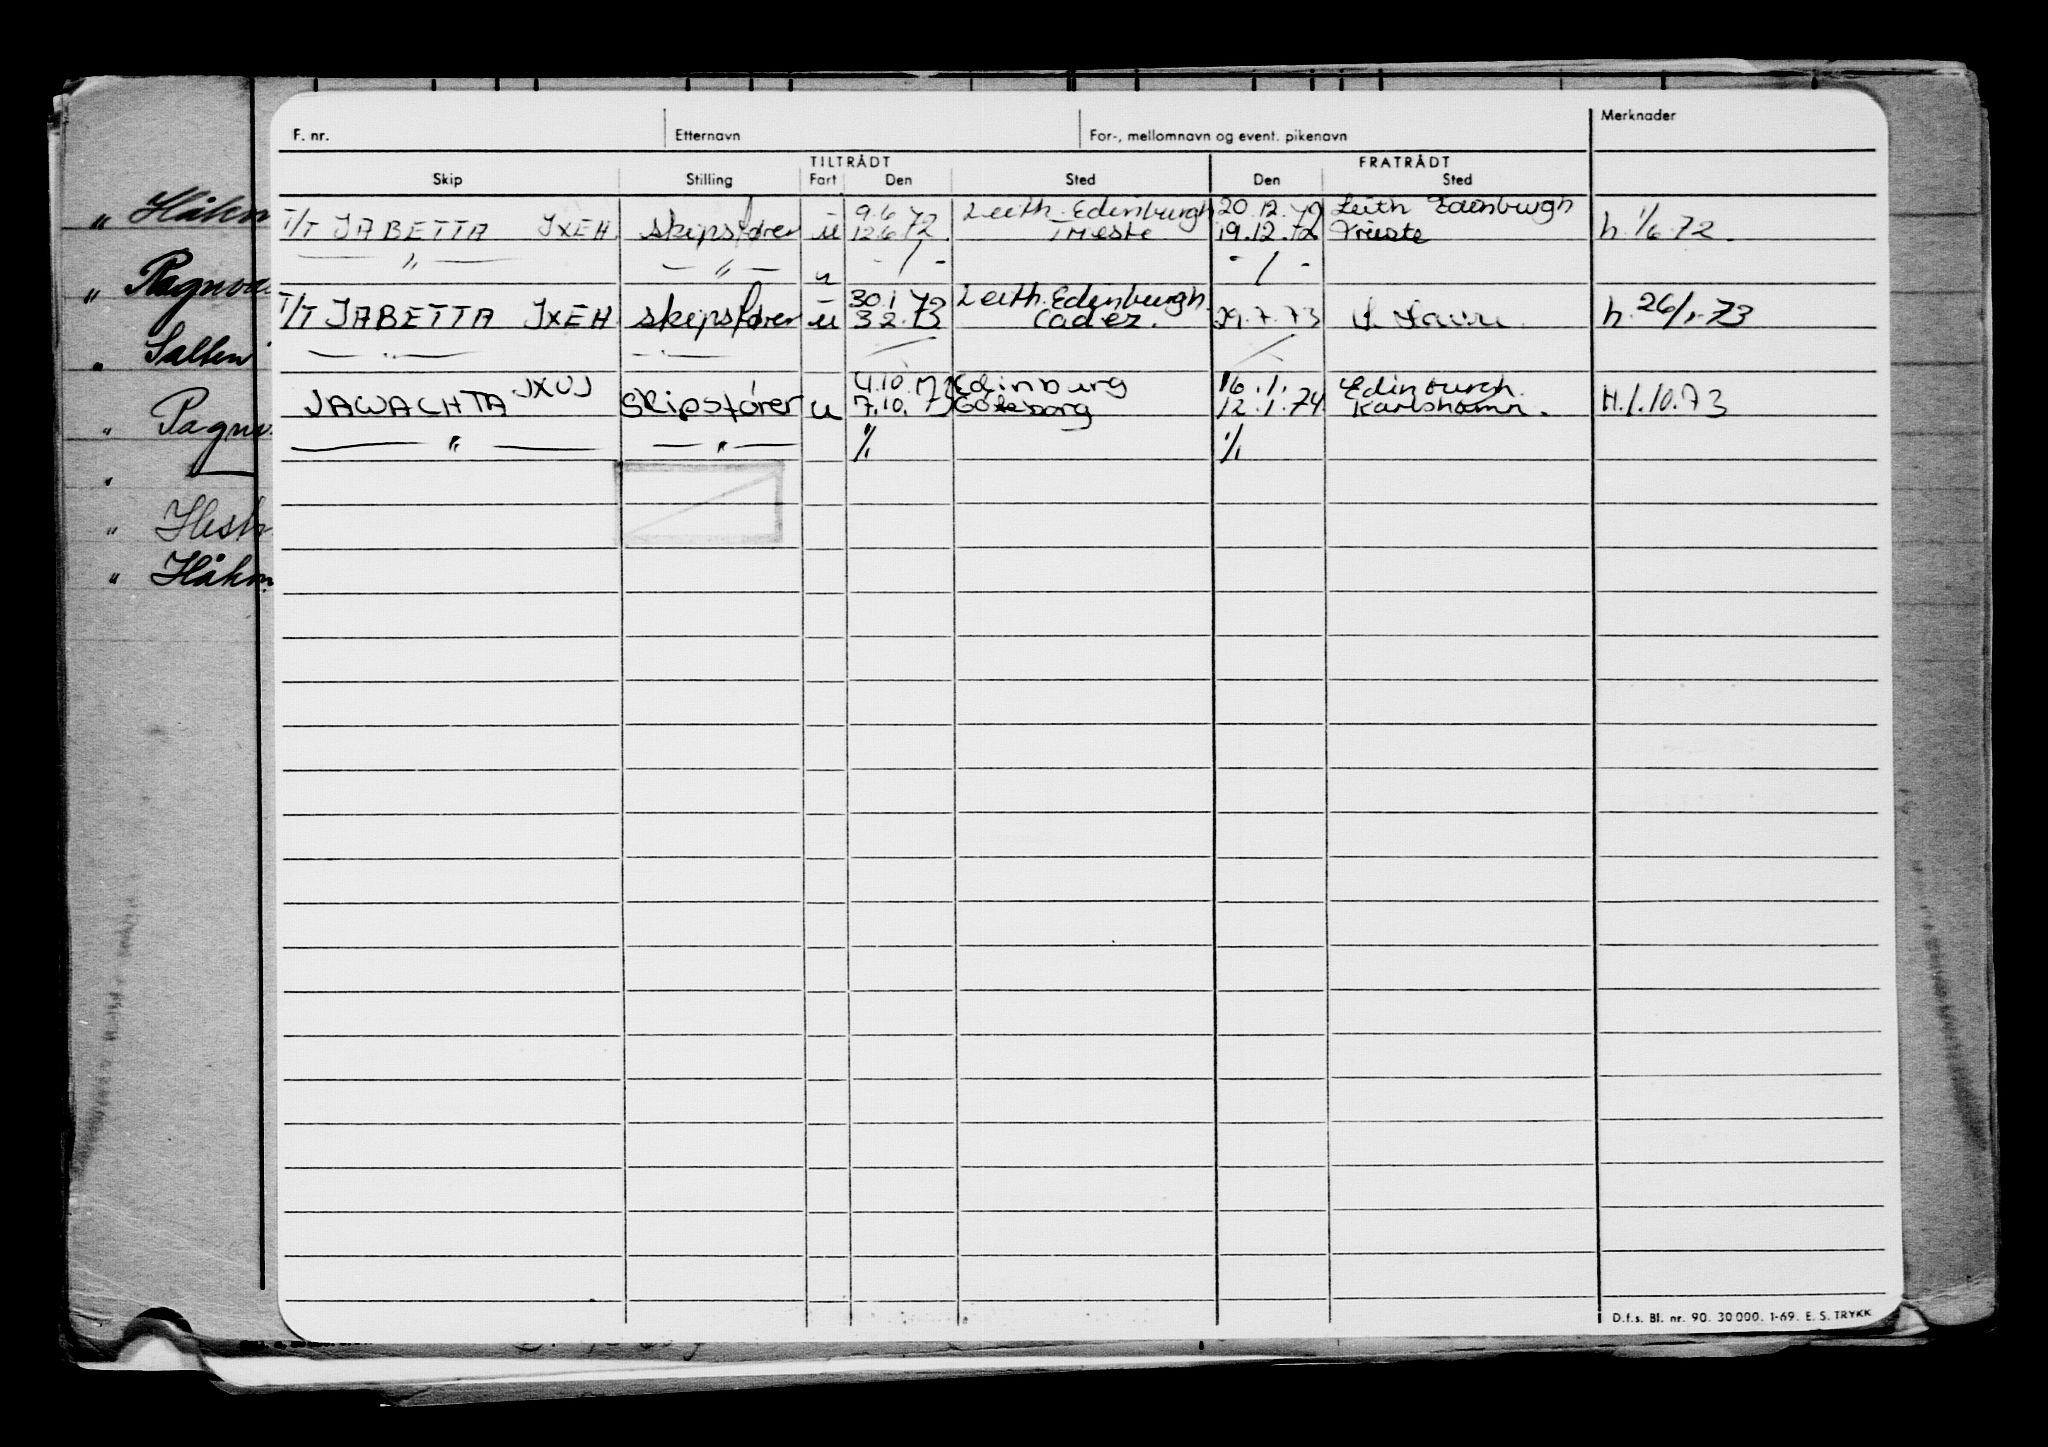 F. nr. Etternavn For-, mellomnavn og event. pikenavn Merknader
TILTRÅDT FRATRÅDT
Skip Stilling Fart Den Sted Den Sted
9.6.72 Leith. Edenburgh 20.12.72 Leith Edenburgh
T/T JABETTA JXEH skipsfører u 12.6.72. Trieste 19.12.72 Trieste h. 1/6.72.
— " — — " — u - / - - / -
30.1.73 Leith. Edenburgh.
T/T JABETTA JXEH skipsfører u 3.2.73 Cadez. 29.7.73 h. 26/1.73
— " — — " — / /
JXUJ 4.10. Edinburg 16.1. Edinburgh.
JAWACHTA skipsfører u 7.10.73 Göteborg 12.1.74 Karlshamn. H.1.10.73
— " — — " — 1/1 1/1
" Håkon
" Ragnva
" Salten
" Ragnv
"
" Hest
" Håkon
D.f.s. Bl. nr. 90. 30000. 1-69. E. S. TRYKK